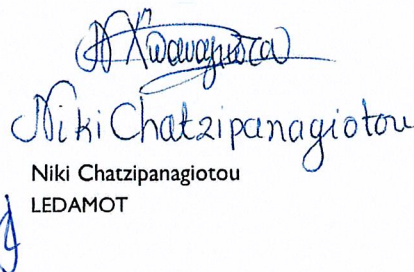 Niki Chatzipanagiotou
Niki Chatzipanagiotou
LEDAMOT